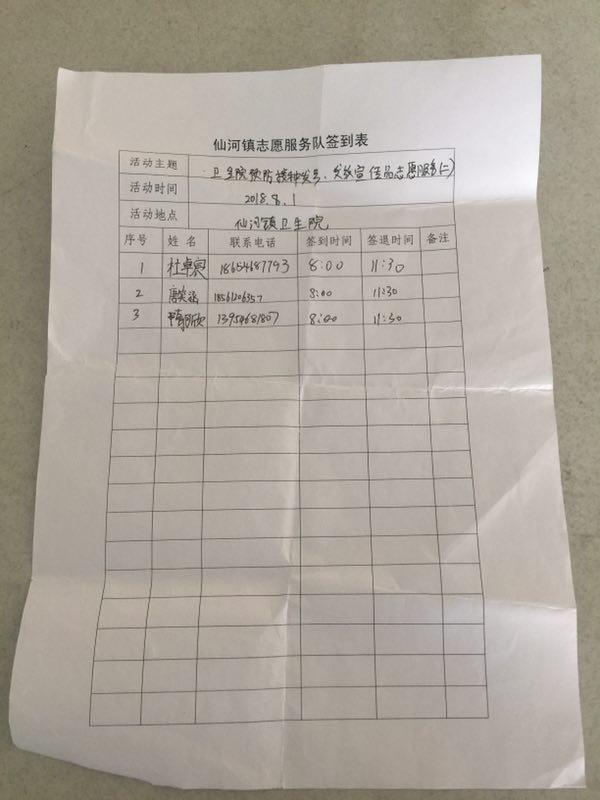 仙河镇志愿服务队签到表
活动主题 卫生院预防接种发号、发放宣传品志愿服务(二)
活动时间 2018.8.1
活动地点 仙河镇卫生院
序号 姓名 联系电话 签到时间 签退时间 备注
1 杜卓 18654687793 8:00 11:30
2 唐笑涵 18561206357 8:00 11:30
3 13954681807 8:00 11:30